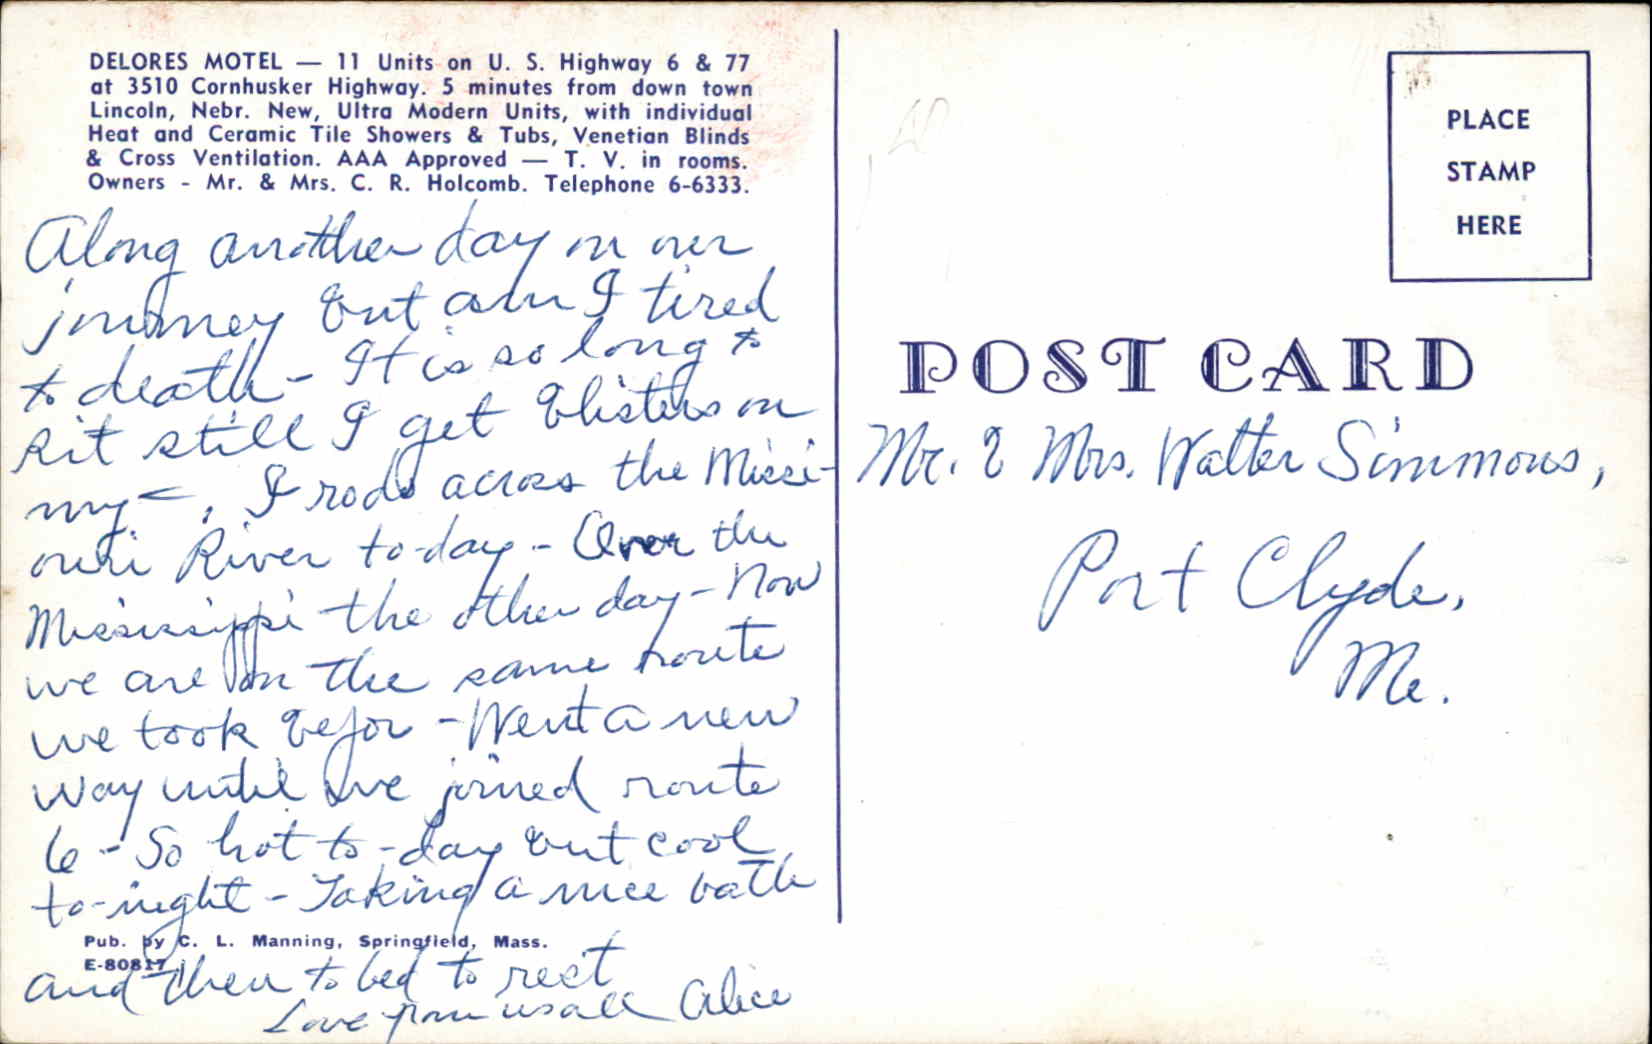 DELORES MOTEL — 11 Units on U. S. Highway 6 & 77
at 3510 Cornhusker Highway. 5 minutes from down town
Lincoln, Nebr. New, Ultra Modern Units, with individual
Heat and Ceramic Tile Showers & Tubs, Venetian Blinds
& Cross Ventilation. AAA Approved — T. V. in rooms.
Owners - Mr. & Mrs. C. R. Holcomb. Telephone 6-6333.
Along another day on our
journey but am I tired
to death - It is so long to
sit still I get blisters on
my - . I rode across the Miss-
ouri River to-day - Over the
Mississippi the other day - Now
we are on the same route
we took befor - Went a new
way until we joined route
6 - So hot to-day but cool
to-night - Taking a nice bath
Pub. by C. L. Manning, Springfield, Mass.
E-80817
and then to bed to rest
Love from us all Alice
PLACE
STAMP
HERE
POST CARD
Mr. & Mrs. Walter Simmons,
Port Clyde,
Me.